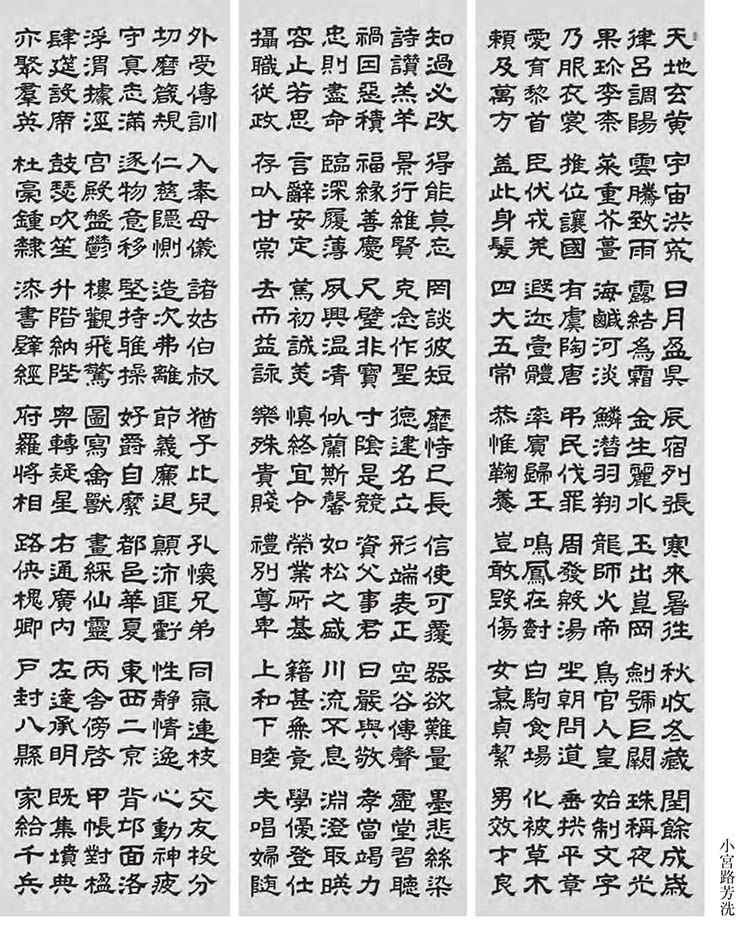 天地玄黃宇宙洪荒日月盈昃辰宿列張寒來暑往秋收冬藏閏餘成歲
律呂調陽雲騰致雨露結為霜金生麗水玉出崑岡劍號巨闕珠稱夜光
果珍李柰菜重芥薑海鹹河淡鱗潛羽翔龍師火帝鳥官人皇始制文字
乃服衣裳推位讓國有虞陶唐弔民伐罪周發殷湯坐朝問道垂拱平章
愛育黎首臣伏戎羌遐迩壹體率賓歸王鳴鳳在樹白駒食場化被草木
賴及萬方蓋此身髮四大五常恭惟鞠養豈敢毀傷女慕貞絜男效才良
知過必改得能莫忘罔談彼短靡恃己長信使可覆器欲難量墨悲絲染
詩讚羔羊景行維賢克念作聖德建名立形端表正空谷傳聲虛堂習聽
禍因惡積福緣善慶尺璧非寶寸陰是競資父事君曰嚴與敬孝當竭力
忠則盡命臨深履薄夙興温凊似蘭斯馨如松之盛川流不息淵澄取暎
容止若思言辭安定篤初誠美慎終宜令榮業所基籍甚無竟學優登仕
攝職從政存以甘棠去而益詠樂殊貴賤禮別尊卑上和下睦夫唱婦随
外受傅訓入奉母儀諸姑伯叔猶子比兒孔懷兄弟同氣連枝交友投分
切磨箴規仁慈隱惻造次弗離節義廉退顛沛匪虧性靜情逸心動神疲
守真志滿逐物意移堅持雅操好爵自縻都邑華夏東西二京背邙面洛
浮渭據涇宮殿盤鬱樓觀飛驚圖寫禽獸畫綵仙靈丙舍傍啓甲帳對楹
肆筵設席鼓瑟吹笙升階納陛弁轉疑星右通廣内左達承明既集墳典
亦聚羣英杜稾鍾隸漆書壁經府羅將相路俠槐卿戶封八縣家給千兵
小宮路芳洗